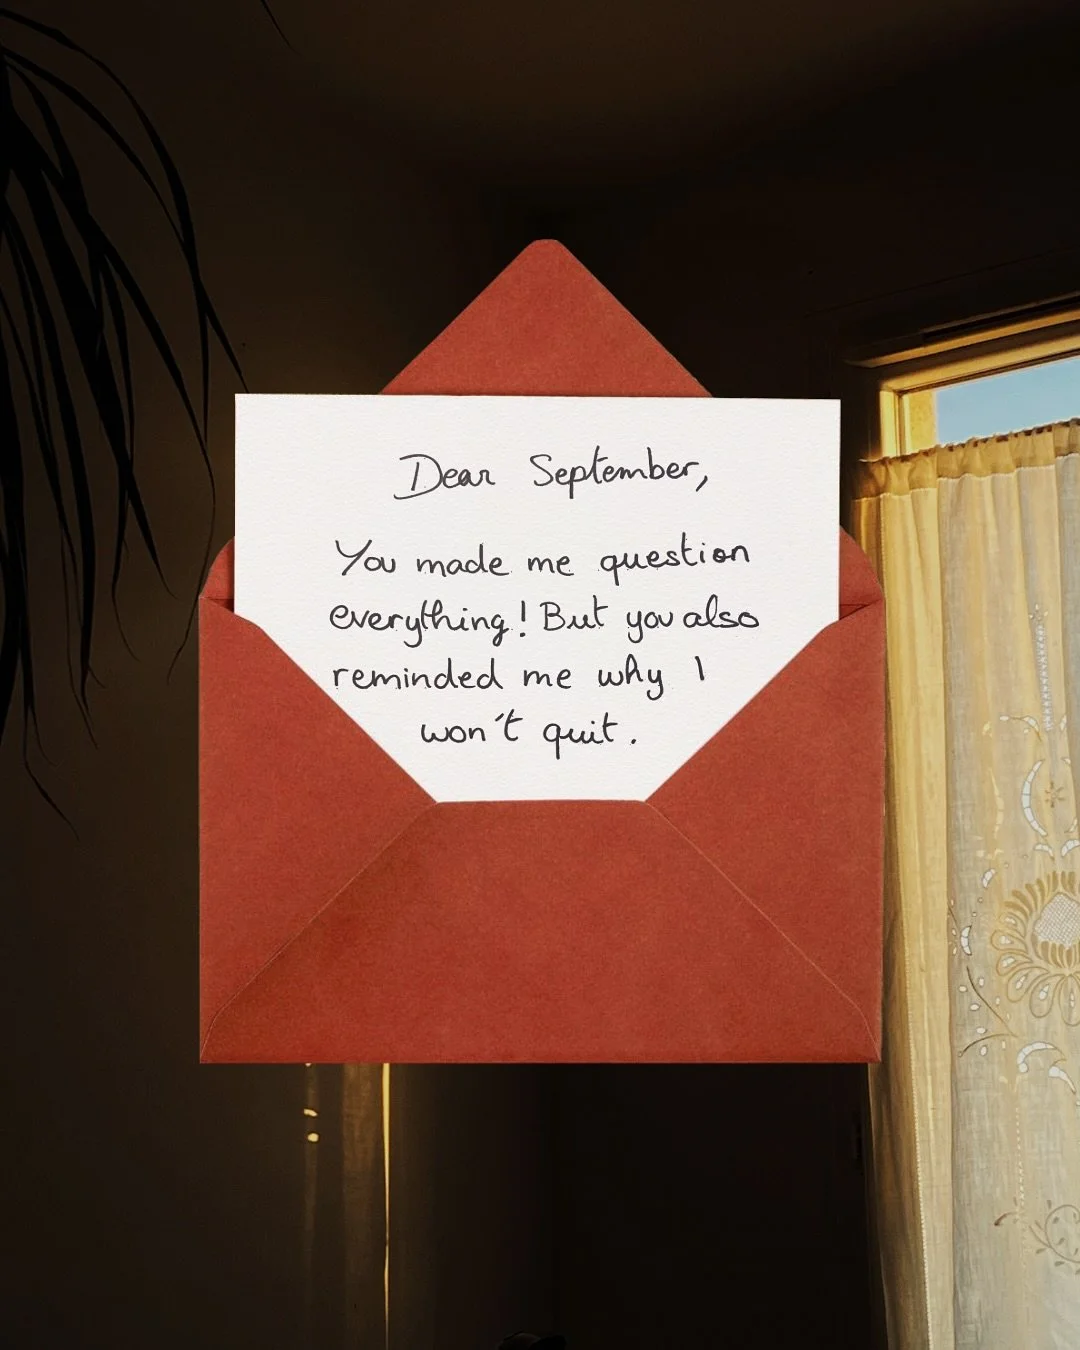 Dear September,
You made me question
everything! But you also
reminded me why I
won't quit.